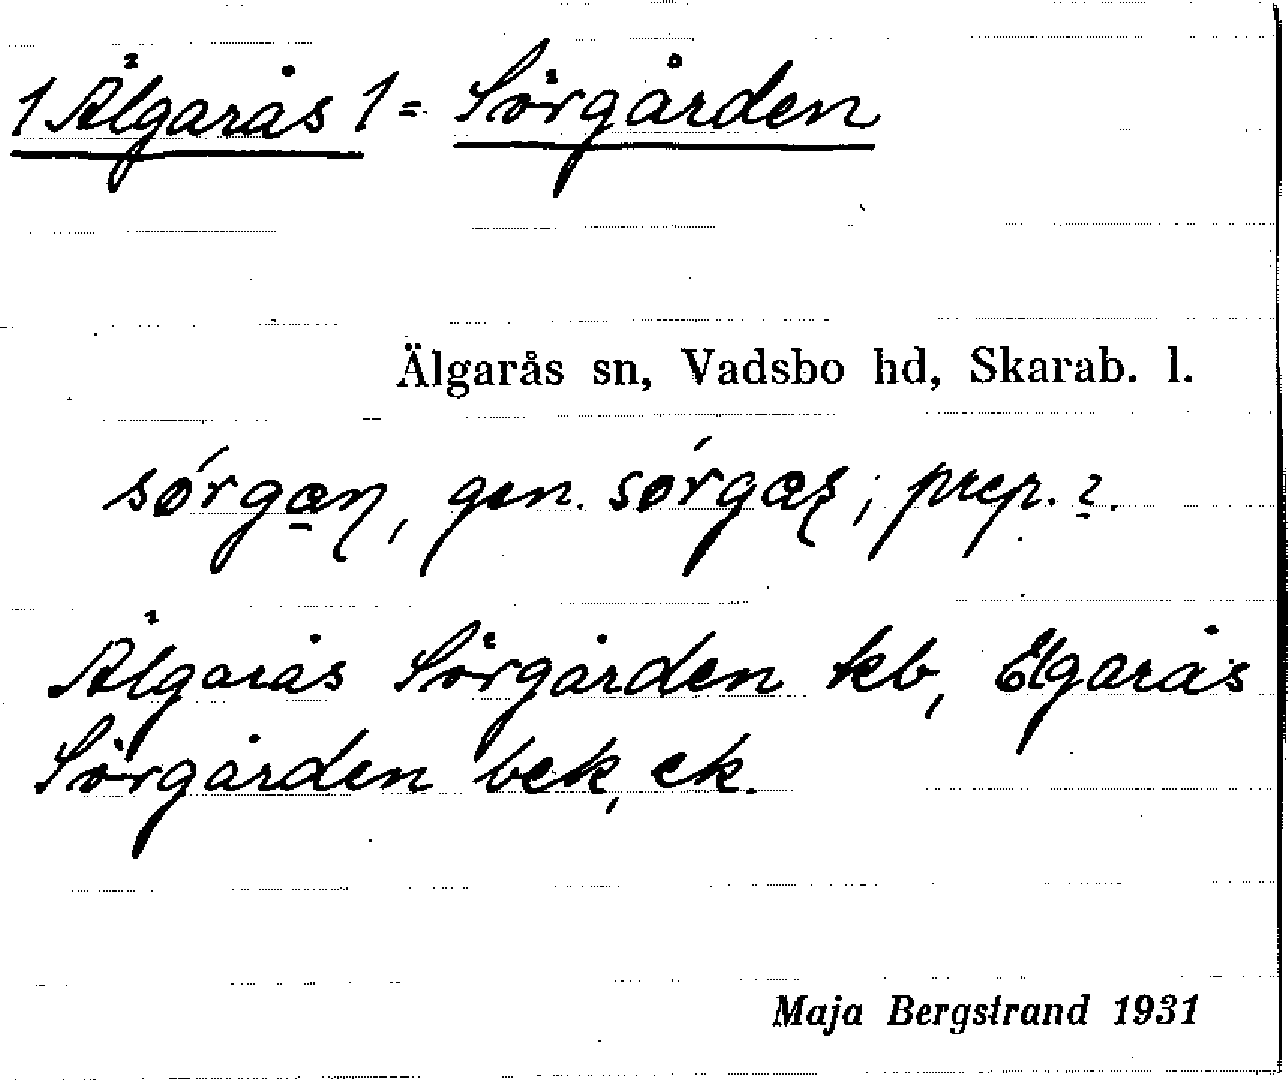 1 Älgarås 1 = Sörgården
Älgarås sn, Vadsbo hd, Skarab. l.
sórgæn, gen. sórgæs; prep. ?.
Älgarås Sörgården kb, Elgarås
Sörgården bek, ek.
Maja Bergstrand 1931